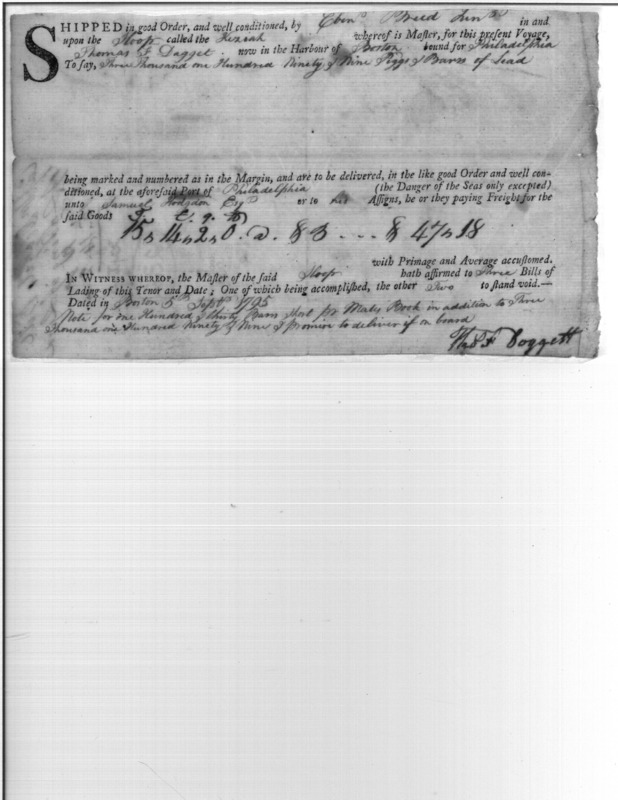 SHIPPED in good Order, and well conditioned, by Ebenr Breed Junr in and
upon the Sloop called the Keziah whereof is Master, for this present Voyage,
Thomas F. Dagget now in the Harbour of Boston bound for Philadelphia
To say, Three Thousand one Hundred Ninety & Nine Piggs & Barrs of Lead
being marked and numbered as in the Margin, and are to be delivered, in the like good Order and well con-
ditioned, at the aforesaid Port of Philadelphia (the Danger of the Seas only excepted)
unto Samuel Hodgdon Esqr or to his Assigns, he or they paying Freight for the
said Goods T C q lb
15 " 14 " 2 " 0 . a . $ 3 - - - $ 47 " 18
with Primage and Average accustomed.
IN WITNESS WHEREOF, the Master of the said Sloop hath affirmed to Three Bills of
Lading of this Tenor and Date; One of which being accomplished, the other Two to stand void.—
Dated in Boston 5 Sept 1795
Note for one Hundred & thirty Barrs Short for Mates Book in addition to Three
Thousand one Hundred Ninety & Nine I promise to deliver if on board
Thos F Doggett